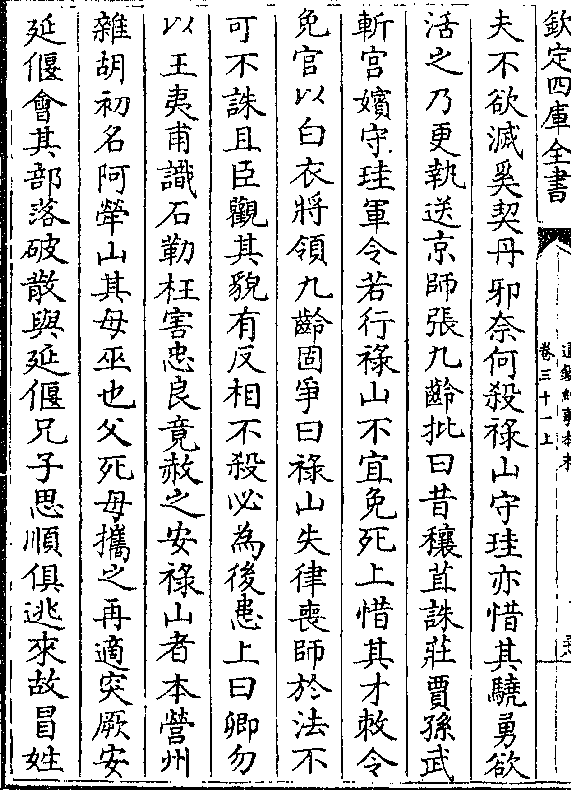 欽定四庫全書
通鑑紀事本末
卷三十一上
夫不欲滅奚契丹邪奈何殺祿山守珪亦惜其驍勇欲
活之乃更執送京師張九齡批曰昔穰苴誅莊賈孫武
斬宮嬪守珪軍令若行祿山不宜免死上惜其才敕令
免官以白衣將領九齡固爭曰祿山失律喪師於法不
可不誅且臣觀其貌有反相不殺必為後患上曰卿勿
以王夷甫識石勒枉害忠良竟赦之安祿山者本營州
雜胡初名阿犖山其母巫也父死母攜之再適突厥安
延偃會其部落破散與延偃兄子思順俱逃來故冒姓